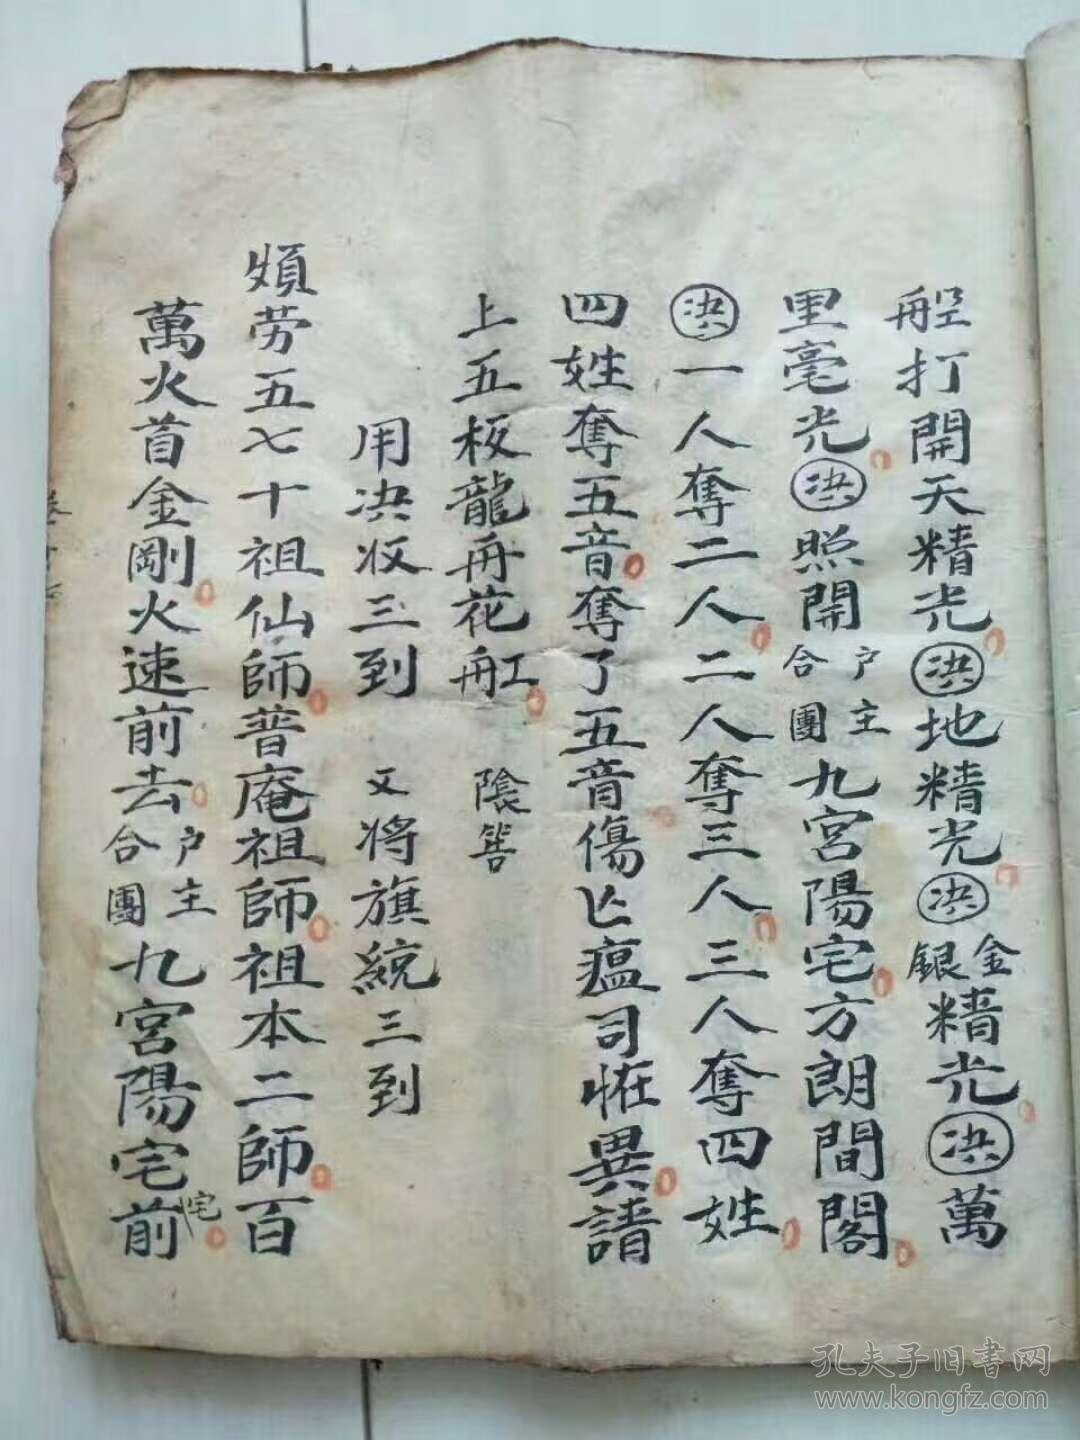 舡打開天精光洪地精光洪金銀精光洪萬
里毫光洪照開户主合團九宮陽宅方朗間閣
洪一人奪二人二人奪三人三人奪四姓
四姓奪五音奪了五音傷亾瘟司恠異請
上五板龍舟花舡 陰筶
用决收三到 又将旗統三到
煩劳五七十祖仙師普庵祖師祖本二師百
萬火首金剛火速前去户主合團九宮陽宅前
宅
孔夫子旧書网
www.kongfz.com